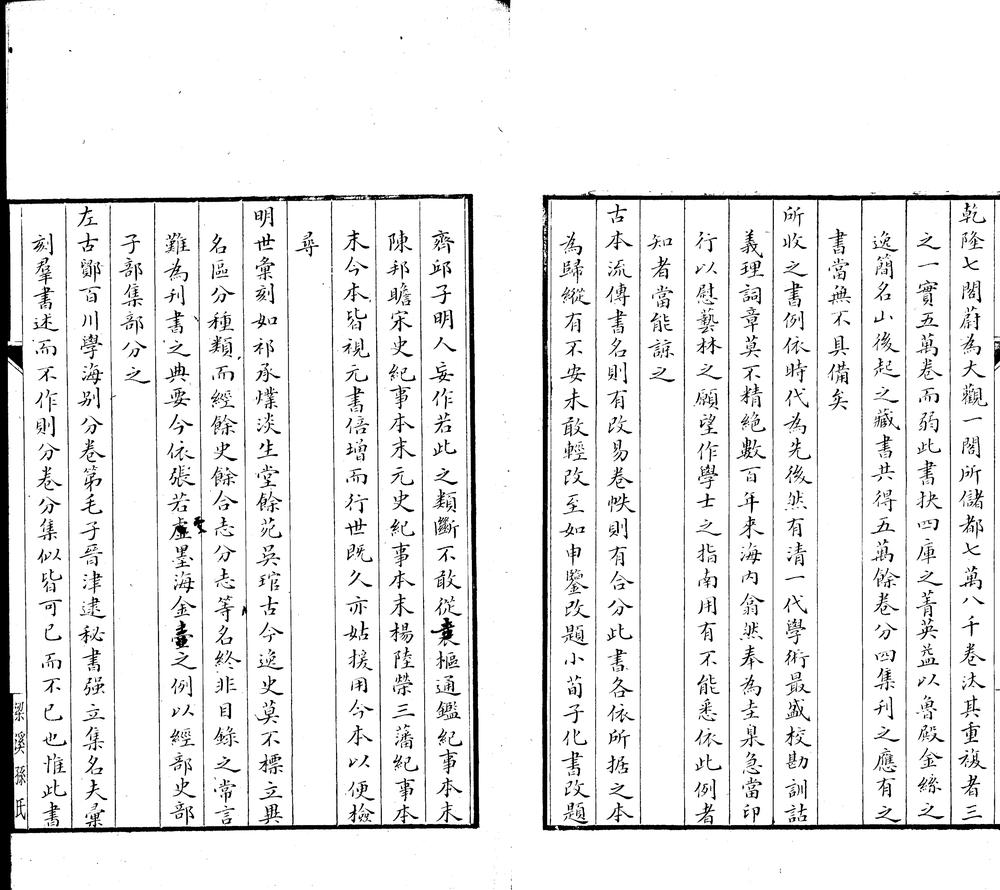 乾隆七閣蔚為大觀一閣所儲都七萬八千卷汰其重複者三
之一實五萬卷而弱此書抉四庫之菁英益以魯殿金絲之
逸簡名山後起之藏書共得五萬餘卷分四集刊之應有之
書當無不具備矣
所收之書例依時代為先後然有清一代學術最盛校勘訓詁
義理詞章莫不精絕數百年來海內翕然奉為圭臬急當印
行以慰藝林之願望作學士之指南用有不能悉依此例者
知者當能諒之
古本流傳書名則有改易卷帙則有合分此書各依所据之本
為歸縱有不安未敢輕改至如申鑒改題小荀子化書改題
齊邱子明人妄作若此之類斷不敢從袁樞通鑑紀事本末
陳邦瞻宋史紀事本末元史紀事本末楊陸榮三藩紀事本
末今本皆視元書倍增而行世既久亦姑援用今本以便檢
尋
明世彙刻如祁承㸁淡生堂餘苑吳琯古今逸史莫不標立異
名區分種類而經餘史餘合志分志等名終非目錄之常言
難為刊書之典要今依張若雲墨海金壺之例以經部史部
子部集部分之
左古鄮百川學海別分卷第毛子晉津逮秘書强立集名夫彙
刻羣書述而不作則分卷分集似皆可已而不已也惟此書
梁溪孫氏